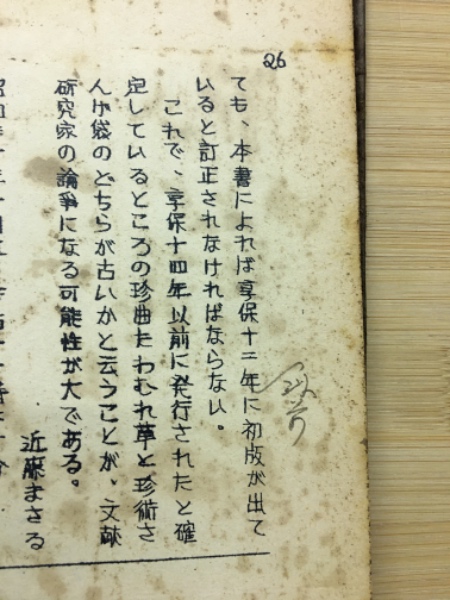 26
ても、本書によれば享保十二年に初版が出て
いると訂正されなければならない。
これで、享保十四年以前に発行されたと確
定しているところの珍曲たわむれ草と珍術さ
んげ袋のどちらが古いかと云うことが、文献
研究家の論爭になる可能性が大である。
近藤まさる